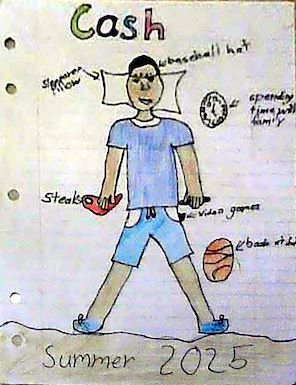 Cash
baseball hat
Sleepover
pillow
spending
time with
family
Steak
video games
Summer 2025